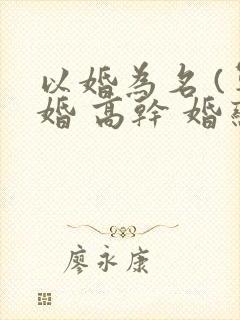 以婚為名(
婚 高幹 婚
廖永康